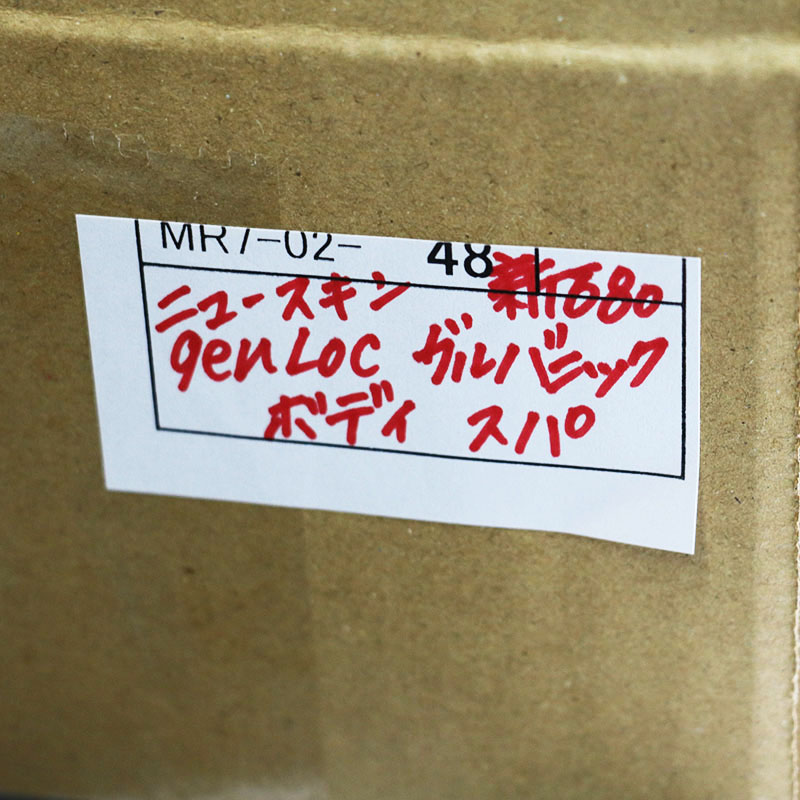 MR7-02- 48
ニュースキン 新680
genLoc ガルバニック
ボディ スパ